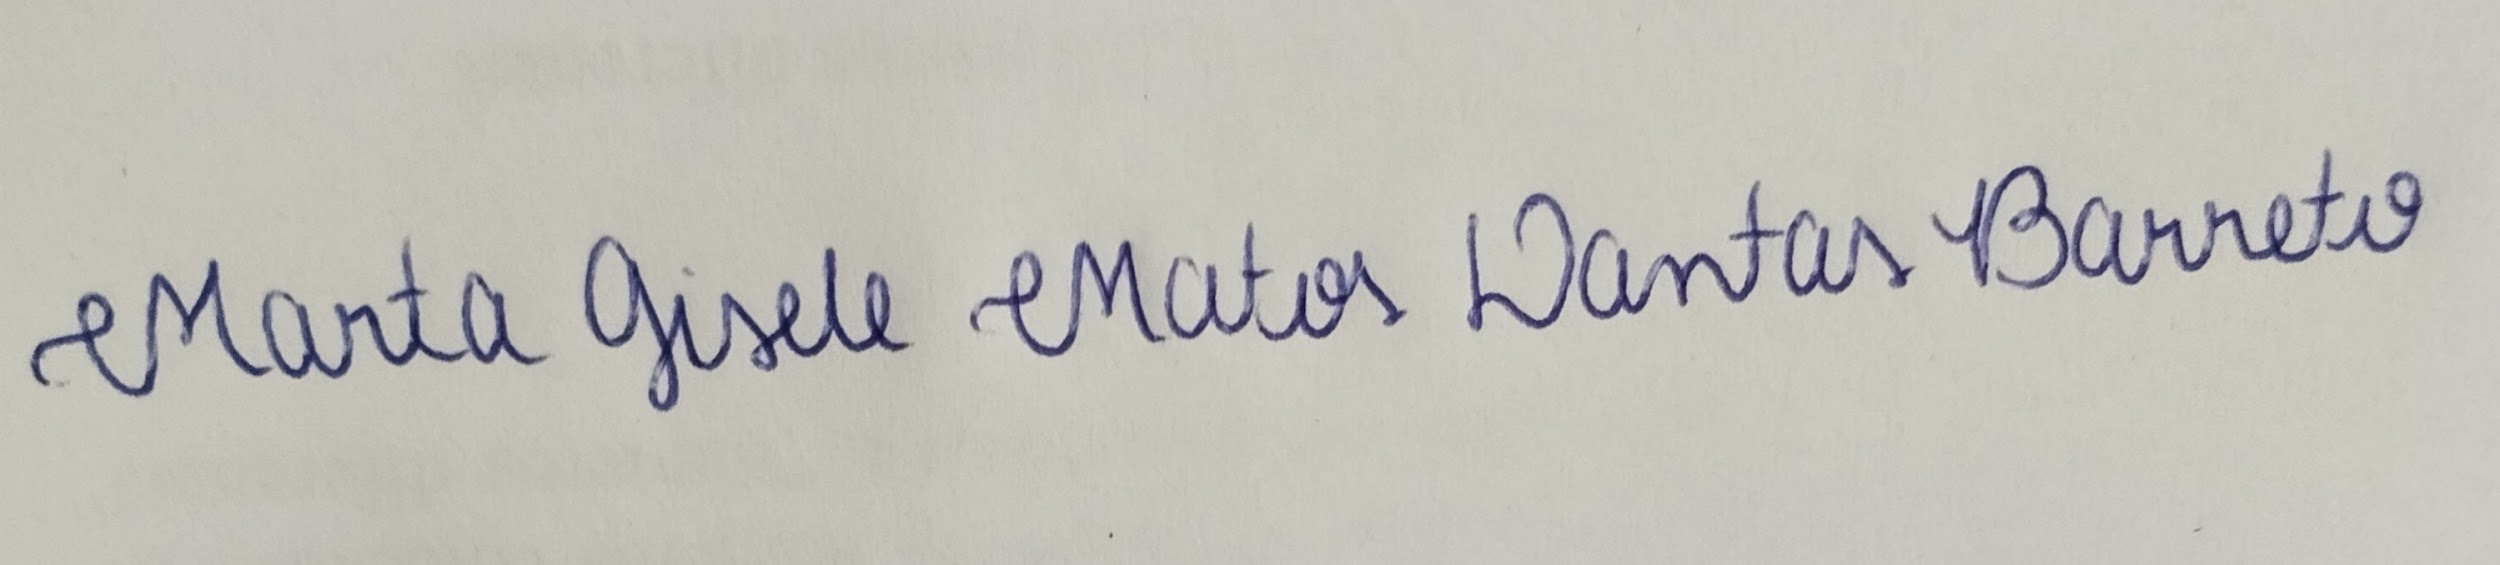 Marta Gisele Matos Dantas Barreto